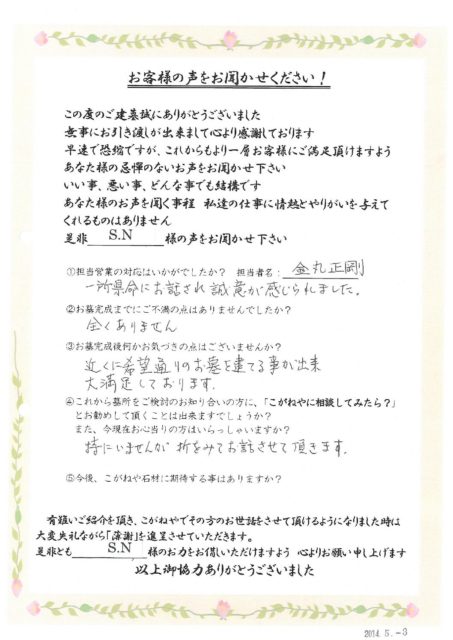 お客様の声をお聞かせください!
この度のご建墓誠にありがとうございました
無事にお引き渡しが出来まして心より感謝しております
早速で恐縮ですが、これからもより一層お客様にご満足頂けますよう
あなた様の忌憚のないお声をお聞かせ下さい
いい事、悪い事、どんな事でも結構です
あなた様のお声を聞く事程 私達の仕事に情熱とやりがいを与えて
くれるものはありません
是非 S.N 様の声をお聞かせ下さい
①担当営業の対応はいかがでしたか? 担当者名: 金丸正剛
一所県命にお話され誠意が感じられました。
②お墓完成までにご不満の点はありませんでしたか?
全くありません
③お墓完成後何かお気づきの点はございませんか?
近くに希望通りのお墓を建てる事が出来
大満足しております。
④これから墓所をご検討のお知り合いの方に、「こがねやに相談してみたら?」
とお勧めして頂くことは出来ますでしょうか?
また、今現在お心当りの方はいらっしゃいますか?
特にいませんが 折をみてお話させて頂きます。
⑤今後、こがねや石材に期待する事はありますか?
有難いご紹介を頂き、こがねやでその方のお世話をさせて頂けるようになりました時は
大変失礼ながら「薄謝」を進呈させていただきます。
是非とも S.N 様のお力をお借しいただけますよう 心よりお願い申し上げます
以上御協力ありがとうございました
2014. 5. -3